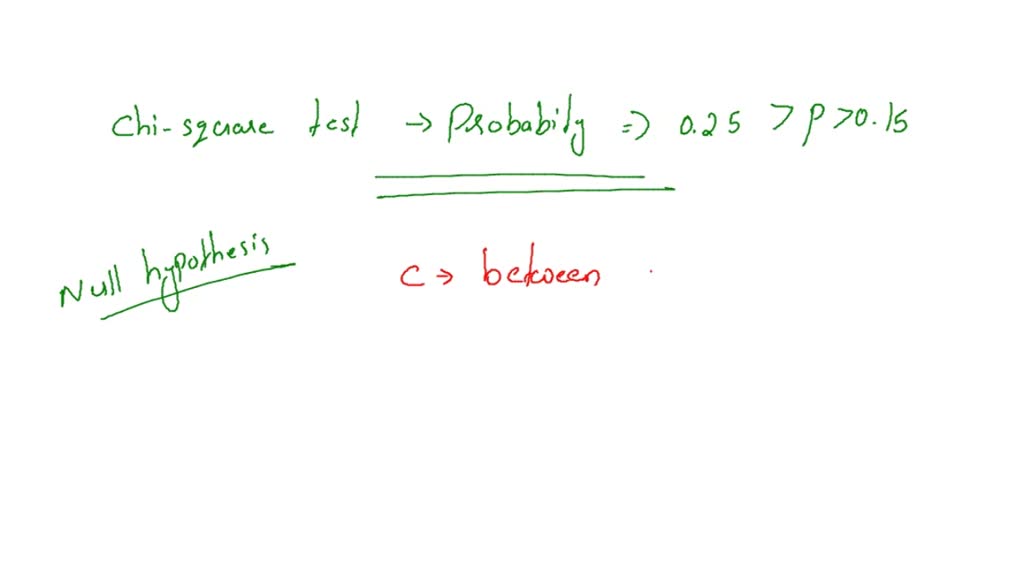 Chi-square test → Probabiliy => 0.25 > p > 0.15
Null hypothesis
C → between